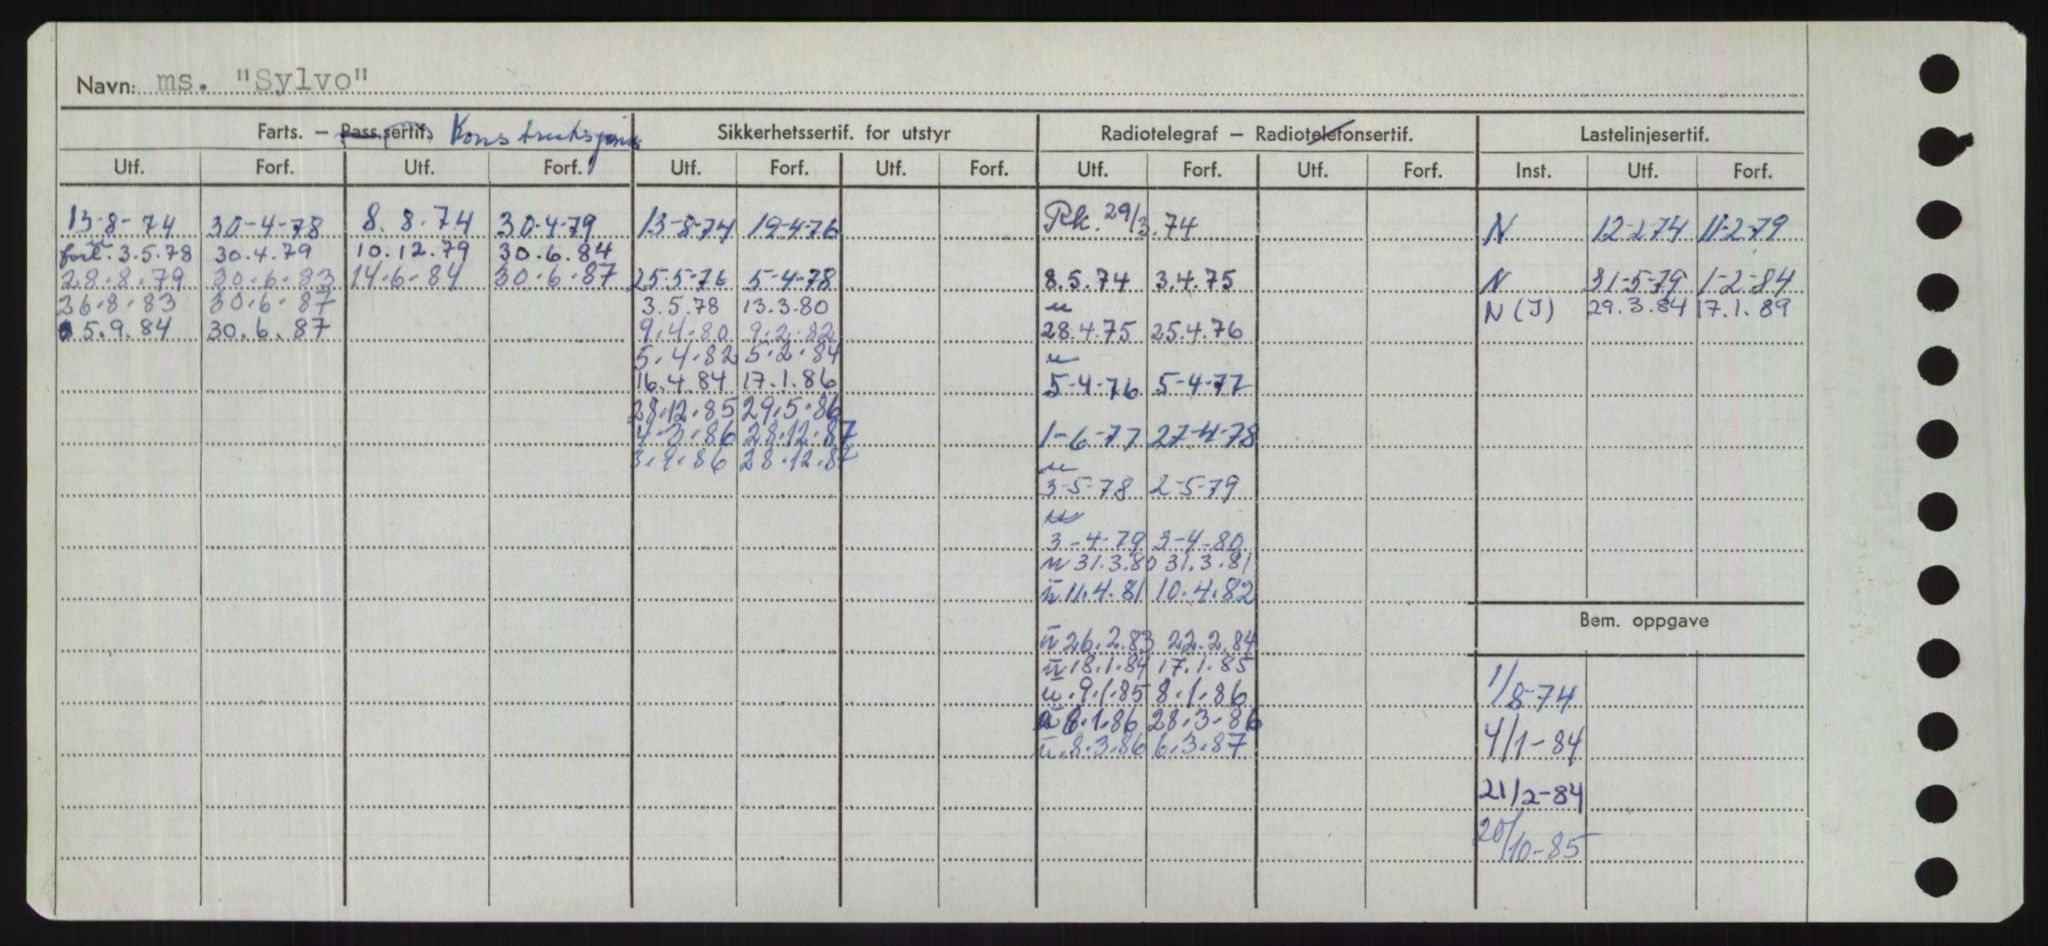 Navn: ms. "Sylvo"
Farts. — Pass.sertif. Sikkerhetssertif. for utstyr Radiotelegraf — Radiotelefonsertif. Lastelinjesertif.
Utf. Forf. Utf. Forf. Utf. Forf. Utf. Forf. Utf. Forf. Utf. Forf. Inst. Utf. Forf.
13-8-74 30-4-78 8.8.74 30.4.79 13-8-74 19-4-76 Rk. 29/3.74 N 12-2-74 11-2-79
forl. 3.5.78 30.4.79 10.12.79 30.6.84
28.8.79 30.6.83 14.6.84 30.6.87 25.5-76 5-4-78 8.5.74 3.4.75 N 31-5-79 1-2-84
26.8.83 30.6.87 3.5.78 13.3.80 u N (J) 29.3.84 17.1.89
5.9.84 30.6.87 9.4.80 9.2.82 28.4.75 25.4.76
5.4.82 5.2.84 u
16.4.84 17.1.86 5-4-76 5-4-77
28.12.85 29.5.86
4.3.86 28.12.87 1-6-77 27-4-78
3.9.86 28.12.87 u
3-5-78 2-5-79
u
3-4-79 3-4-80
u 31.3.80 31.3.81
u 11.4.81 10.4.82
Bem. oppgave
u 26.2.83 22.2.84
u 18.1.84 17.1.85
u. 9.1.85 8.1.86 1/8-74
u 8.1.86 28.3.86
u. 8.3.86 6.3.87 4/1-84
21/2-84
20/10-85